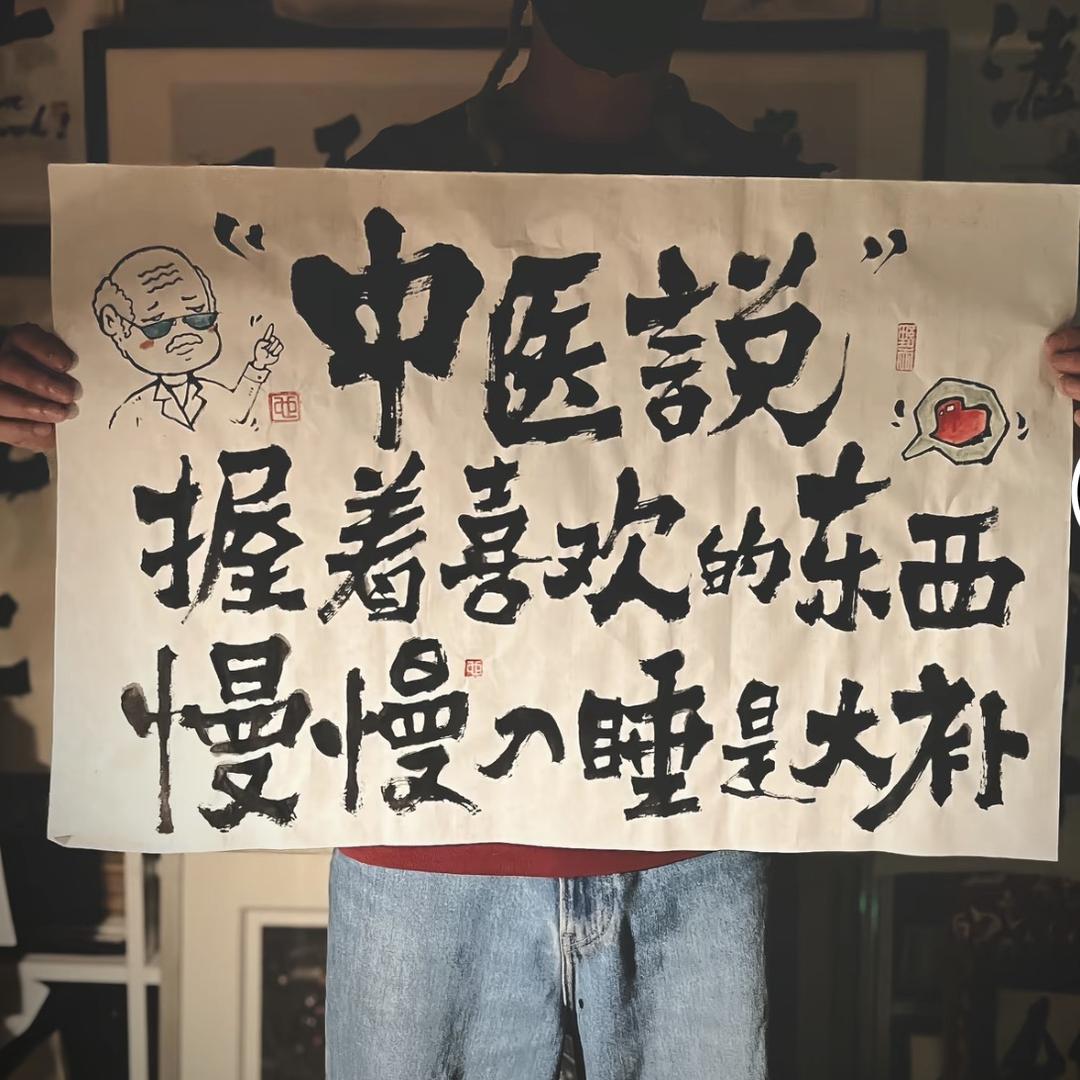 “中医说”
握着喜欢的东西
慢慢入睡是大补